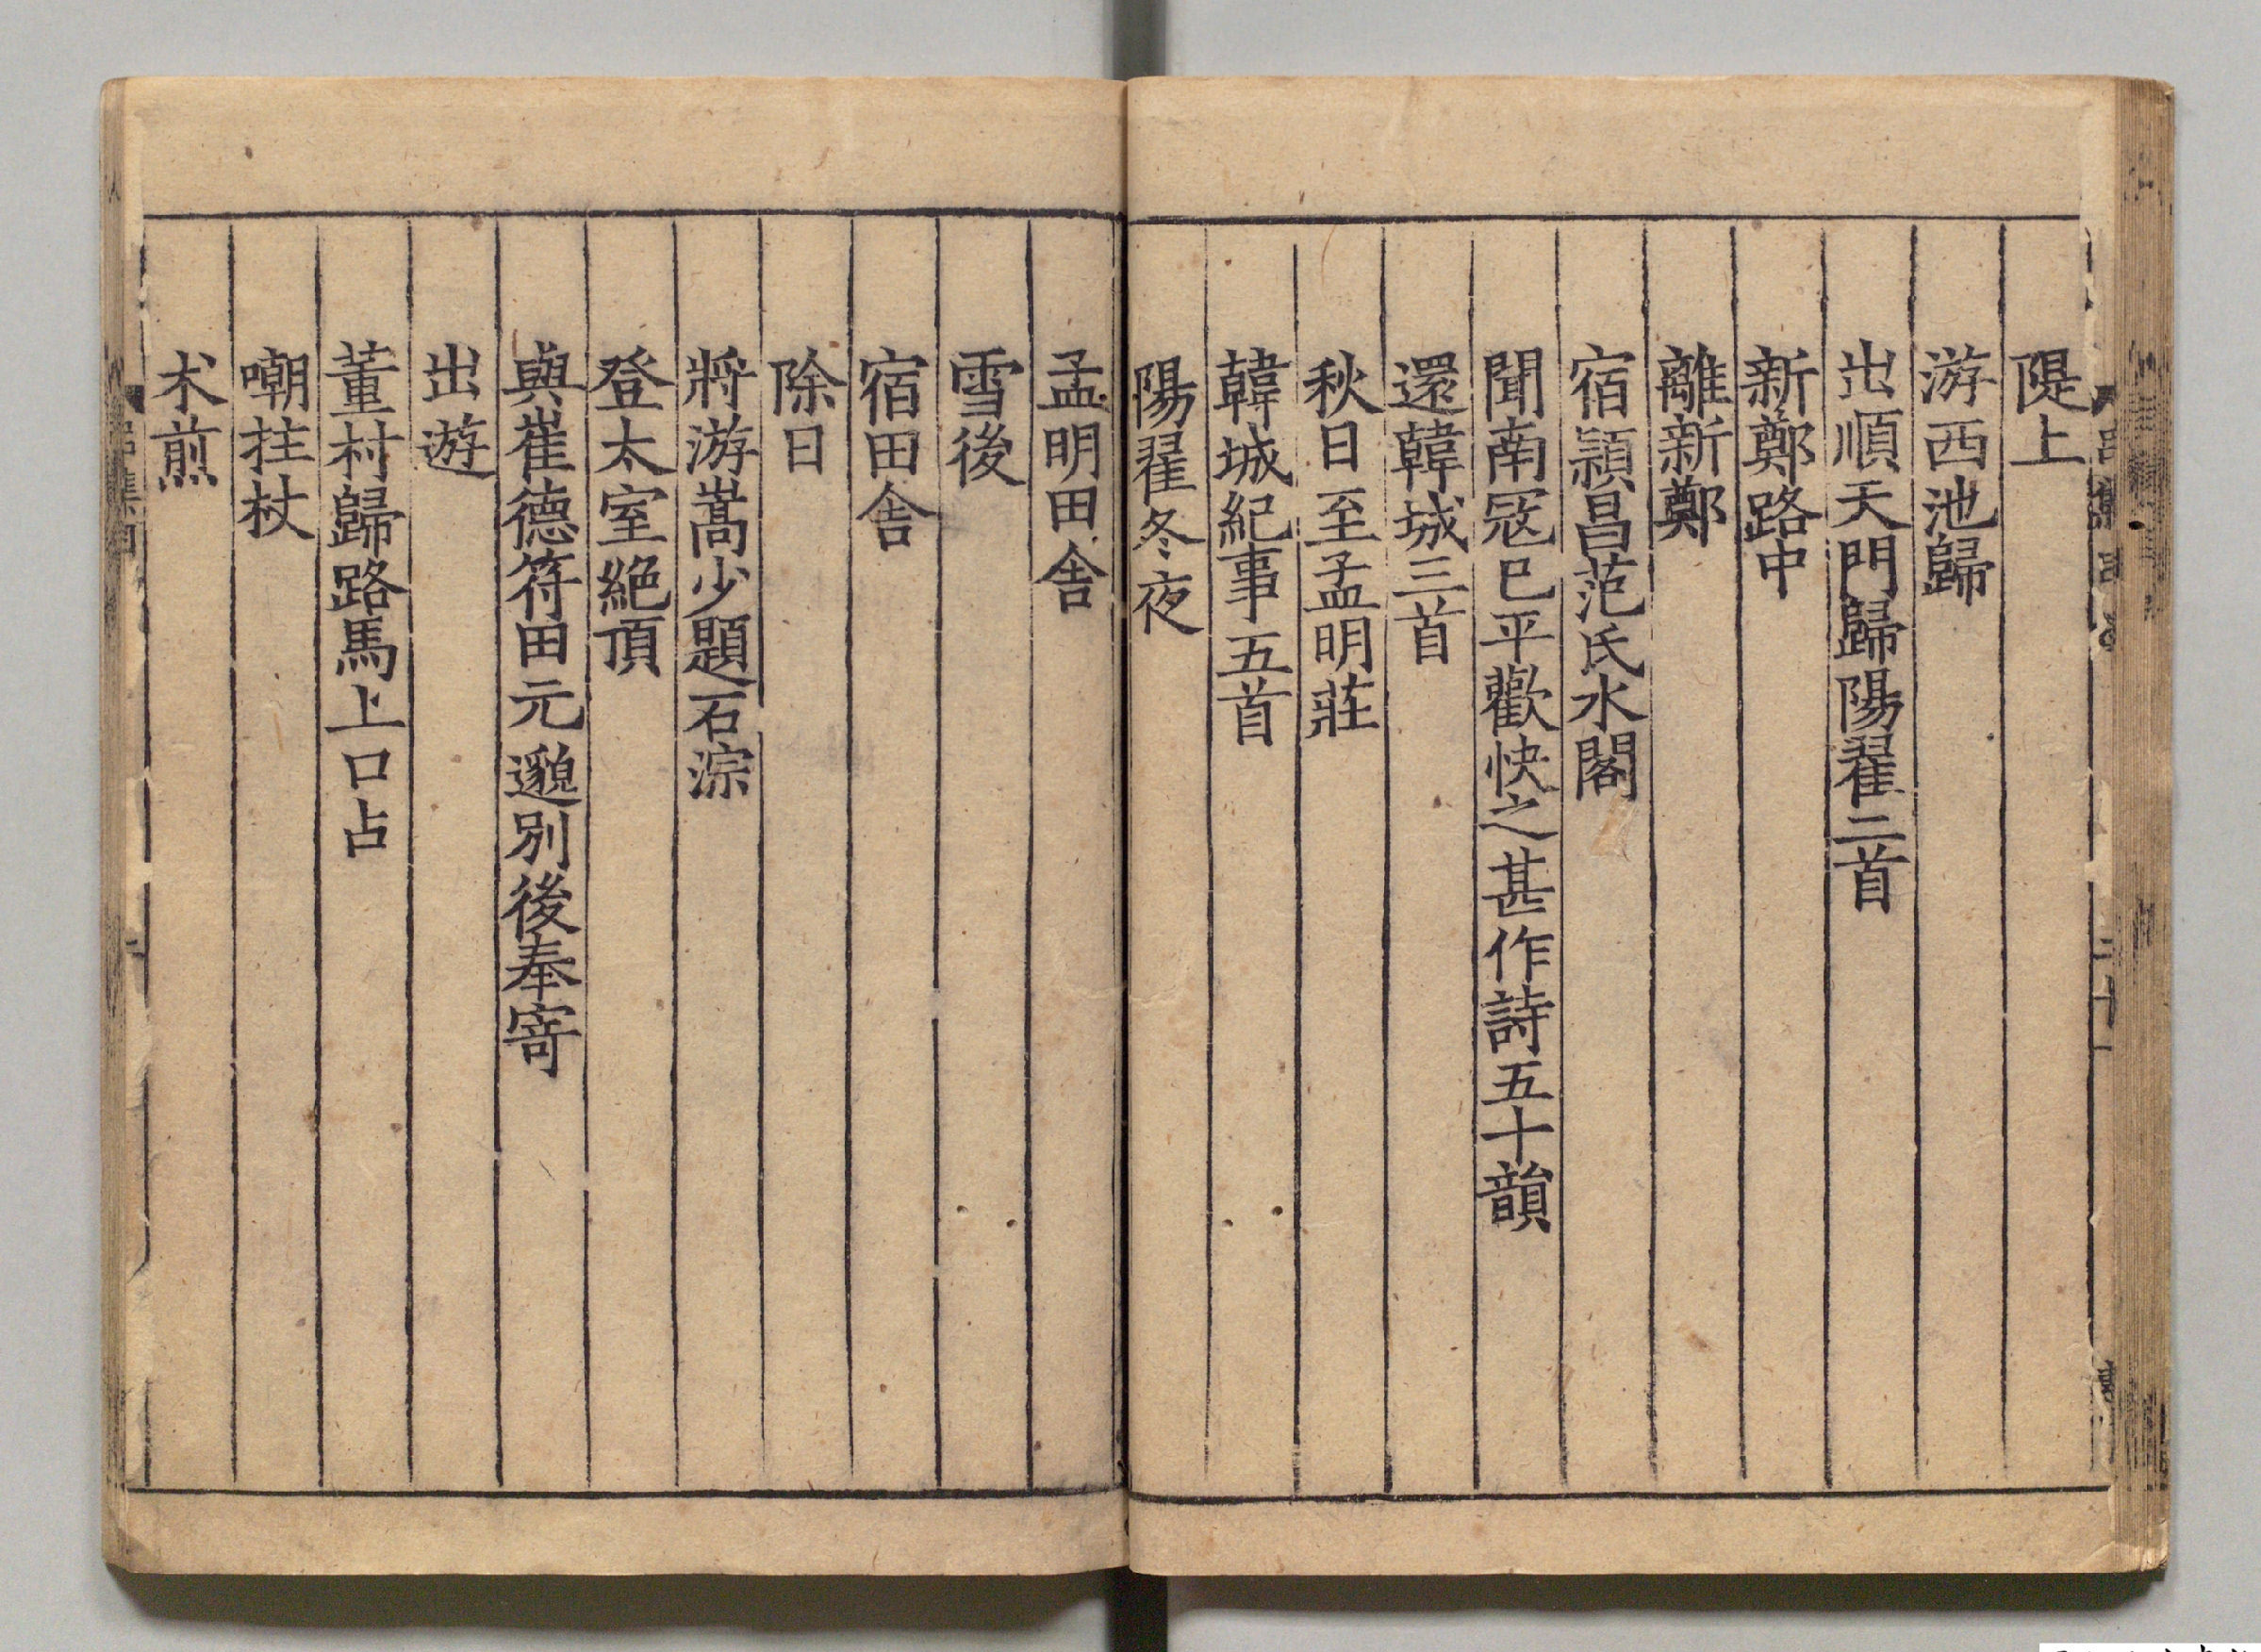 隄上
游西池歸
出順天門歸陽翟二首
新鄭路中
離新鄭
宿潁昌范氏水閣
聞南冦已平歡快之甚作詩五十韻
還韓城三首
秋日至孟明莊
韓城紀事五首
陽翟冬夜
孟明田舎
雪後
宿田舎
除日
將游嵩少題石淙
登太室絶頂
與崔德符田元邈別後奉寄
出遊
董村歸路馬上口占
嘲拄杖
朮煎